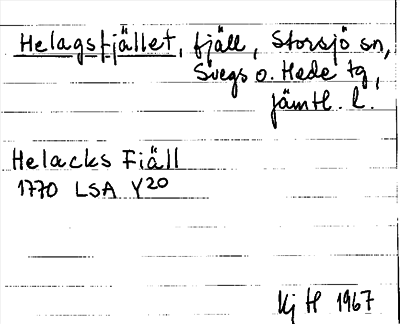 Helagsfjället, fjäll, Storsjö sn,
Svegs o. Hede tg,
jämtl. l.
Helacks Fiäll
1770 LSA Y20
Kj H 1967